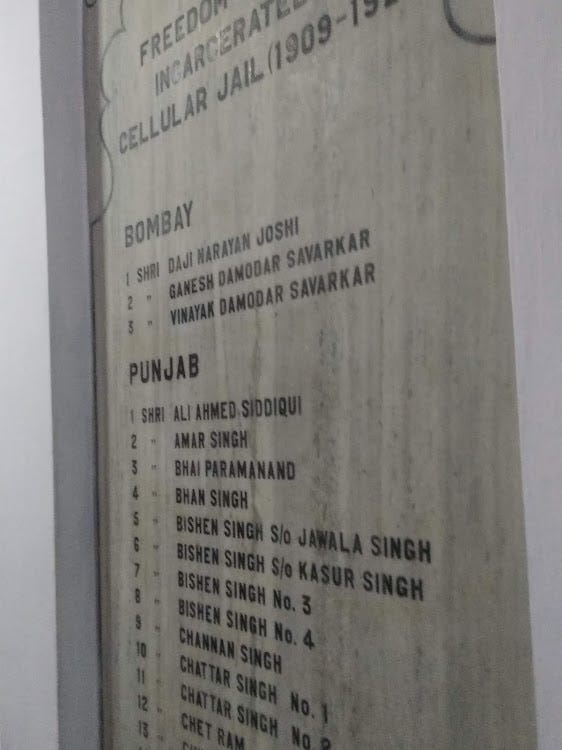 FREEDOM
INCARCERATED
CELLULAR JAIL (1909-192
BOMBAY
1 SHRI DAJI NARAYAN JOSHI
2 " GANESH DAMODAR SAVARKAR
3 " VINAYAK DAMODAR SAVARKAR
PUNJAB
1 SHRI ALI AHMED SIDDIQUI
2 " AMAR SINGH
3 " BHAI PARAMANAND
4 " BHAN SINGH
5 " BISHEN SINGH S/o JAWALA SINGH
6 " BISHEN SINGH S/o KASUR SINGH
7 " BISHEN SINGH No. 3
8 " BISHEN SINGH No. 4
9 " CHANNAN SINGH
10 " CHATTAR SINGH No. 1
11 " CHATTAR SINGH No. 2
12 " CHET RAM
13 "